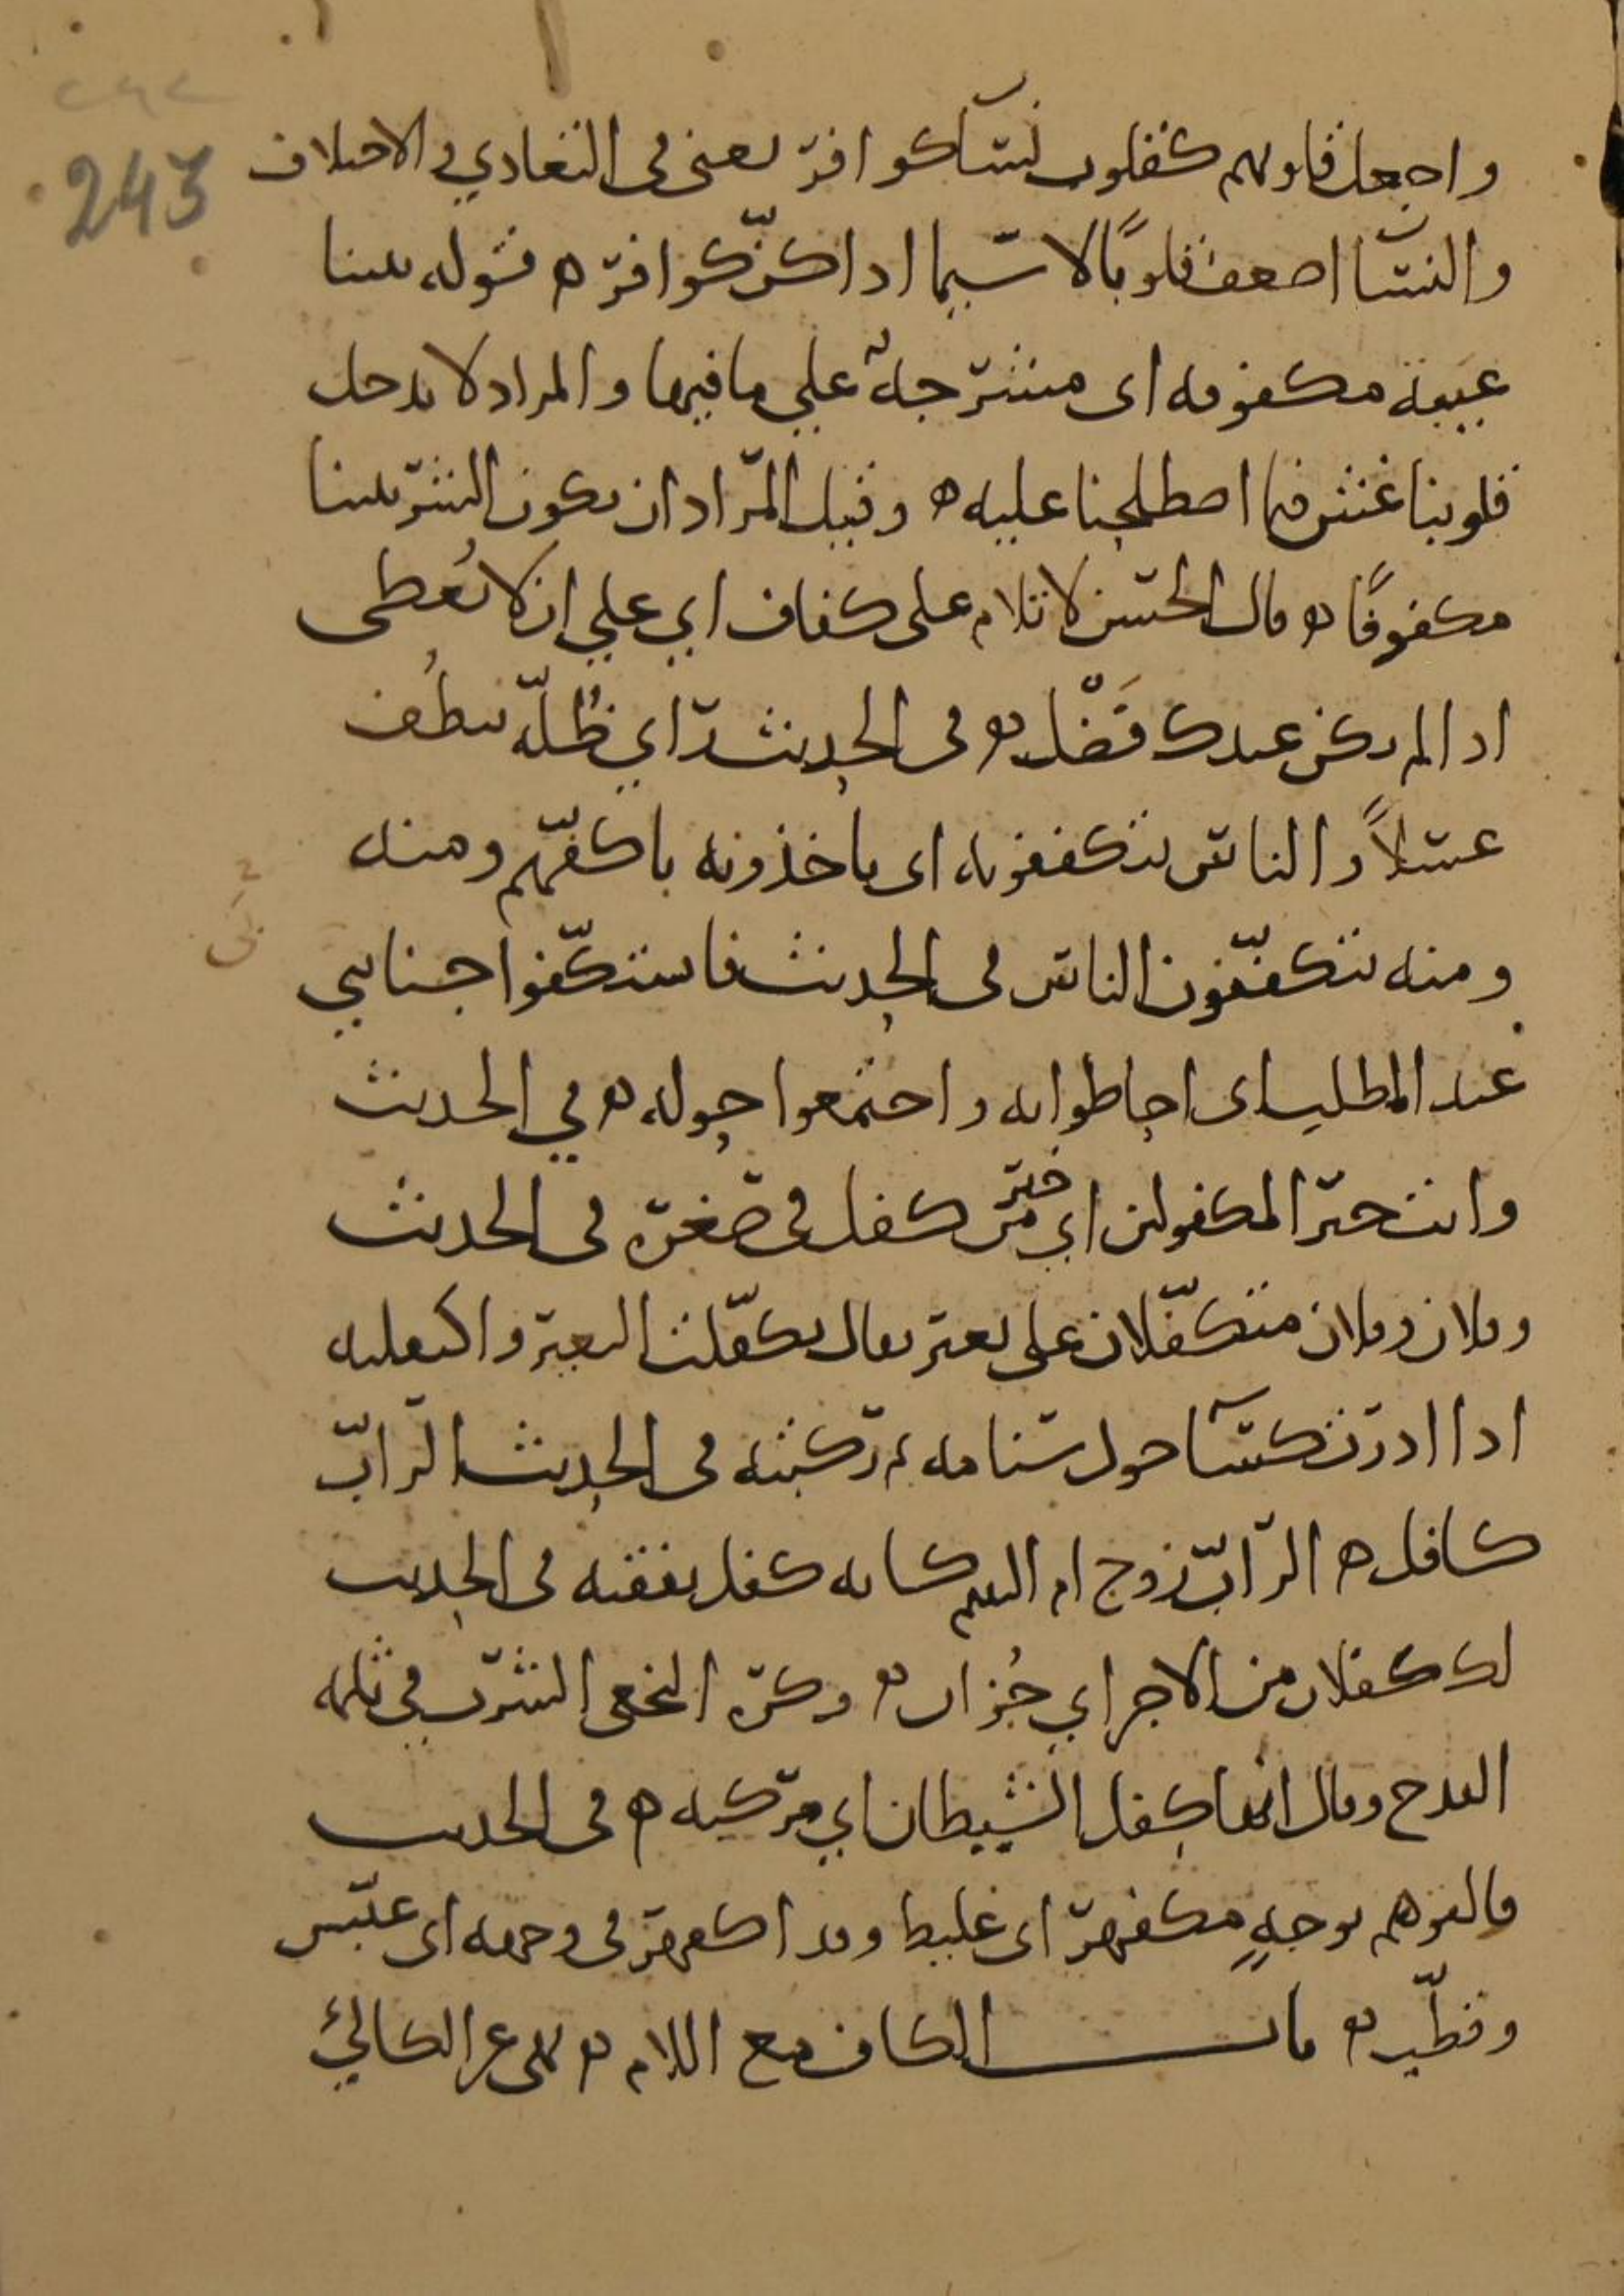 ٢٤٢
243
واجعل قلوبهم كقلوب نسآ كوافر يعنى فى التعادي والاختلاف
والنسا اضعف قلوبًا لا سيما اذا كنّ كوافر ه قوله بيننا
عيبة مكفوفه اى مشرجة على ما فيها والمراد لا يدخل
قلوبنا غش فيما اصطلحنا عليه ه وقيل المراد ان يكون الشر بيننا
مكفوفًا ه قال الحسن لا تلام على كفاف اي علي ان لا تُعطى
اذا لم يكن عندك فَضْل ه فى الحديث راي ظُلّه تنطُف
عسلاً والناس يتكففونه اى ياخذونه باكفّهم ومنه
ومنه يتكفّفون الناس فى الحديث فاستكفّوا جنابي
عبد المطلب اى احاطوا به واجتمعوا حوله ه في الحديث
وانت خير المكفولين اي خير من كفل في صغره فى الحديث
وفلان وفلان متكفّلان على بعير يقال تكفّلت البعير واكتفلته
اذا ادرت كسآ حول سنامه ثم ركبته فى الحديث الرابّ
كافل ه الرابّ زوج ام اليتيم كانه كفل نفقته فى الحديث
لك كفلان من الاجر اي جُزان ه وكره النخعى الشرب في ثلمه
القدح وقال انها كفل الشيطان اي مركبه ه فى الحديث
فالقوهم بوجهٍ مكفهرّ اى غليظ وقد اكفهر فى وجهه اى عبّس
وقطّب ه باب الكاف مع اللام ه نهى عن الكالئ